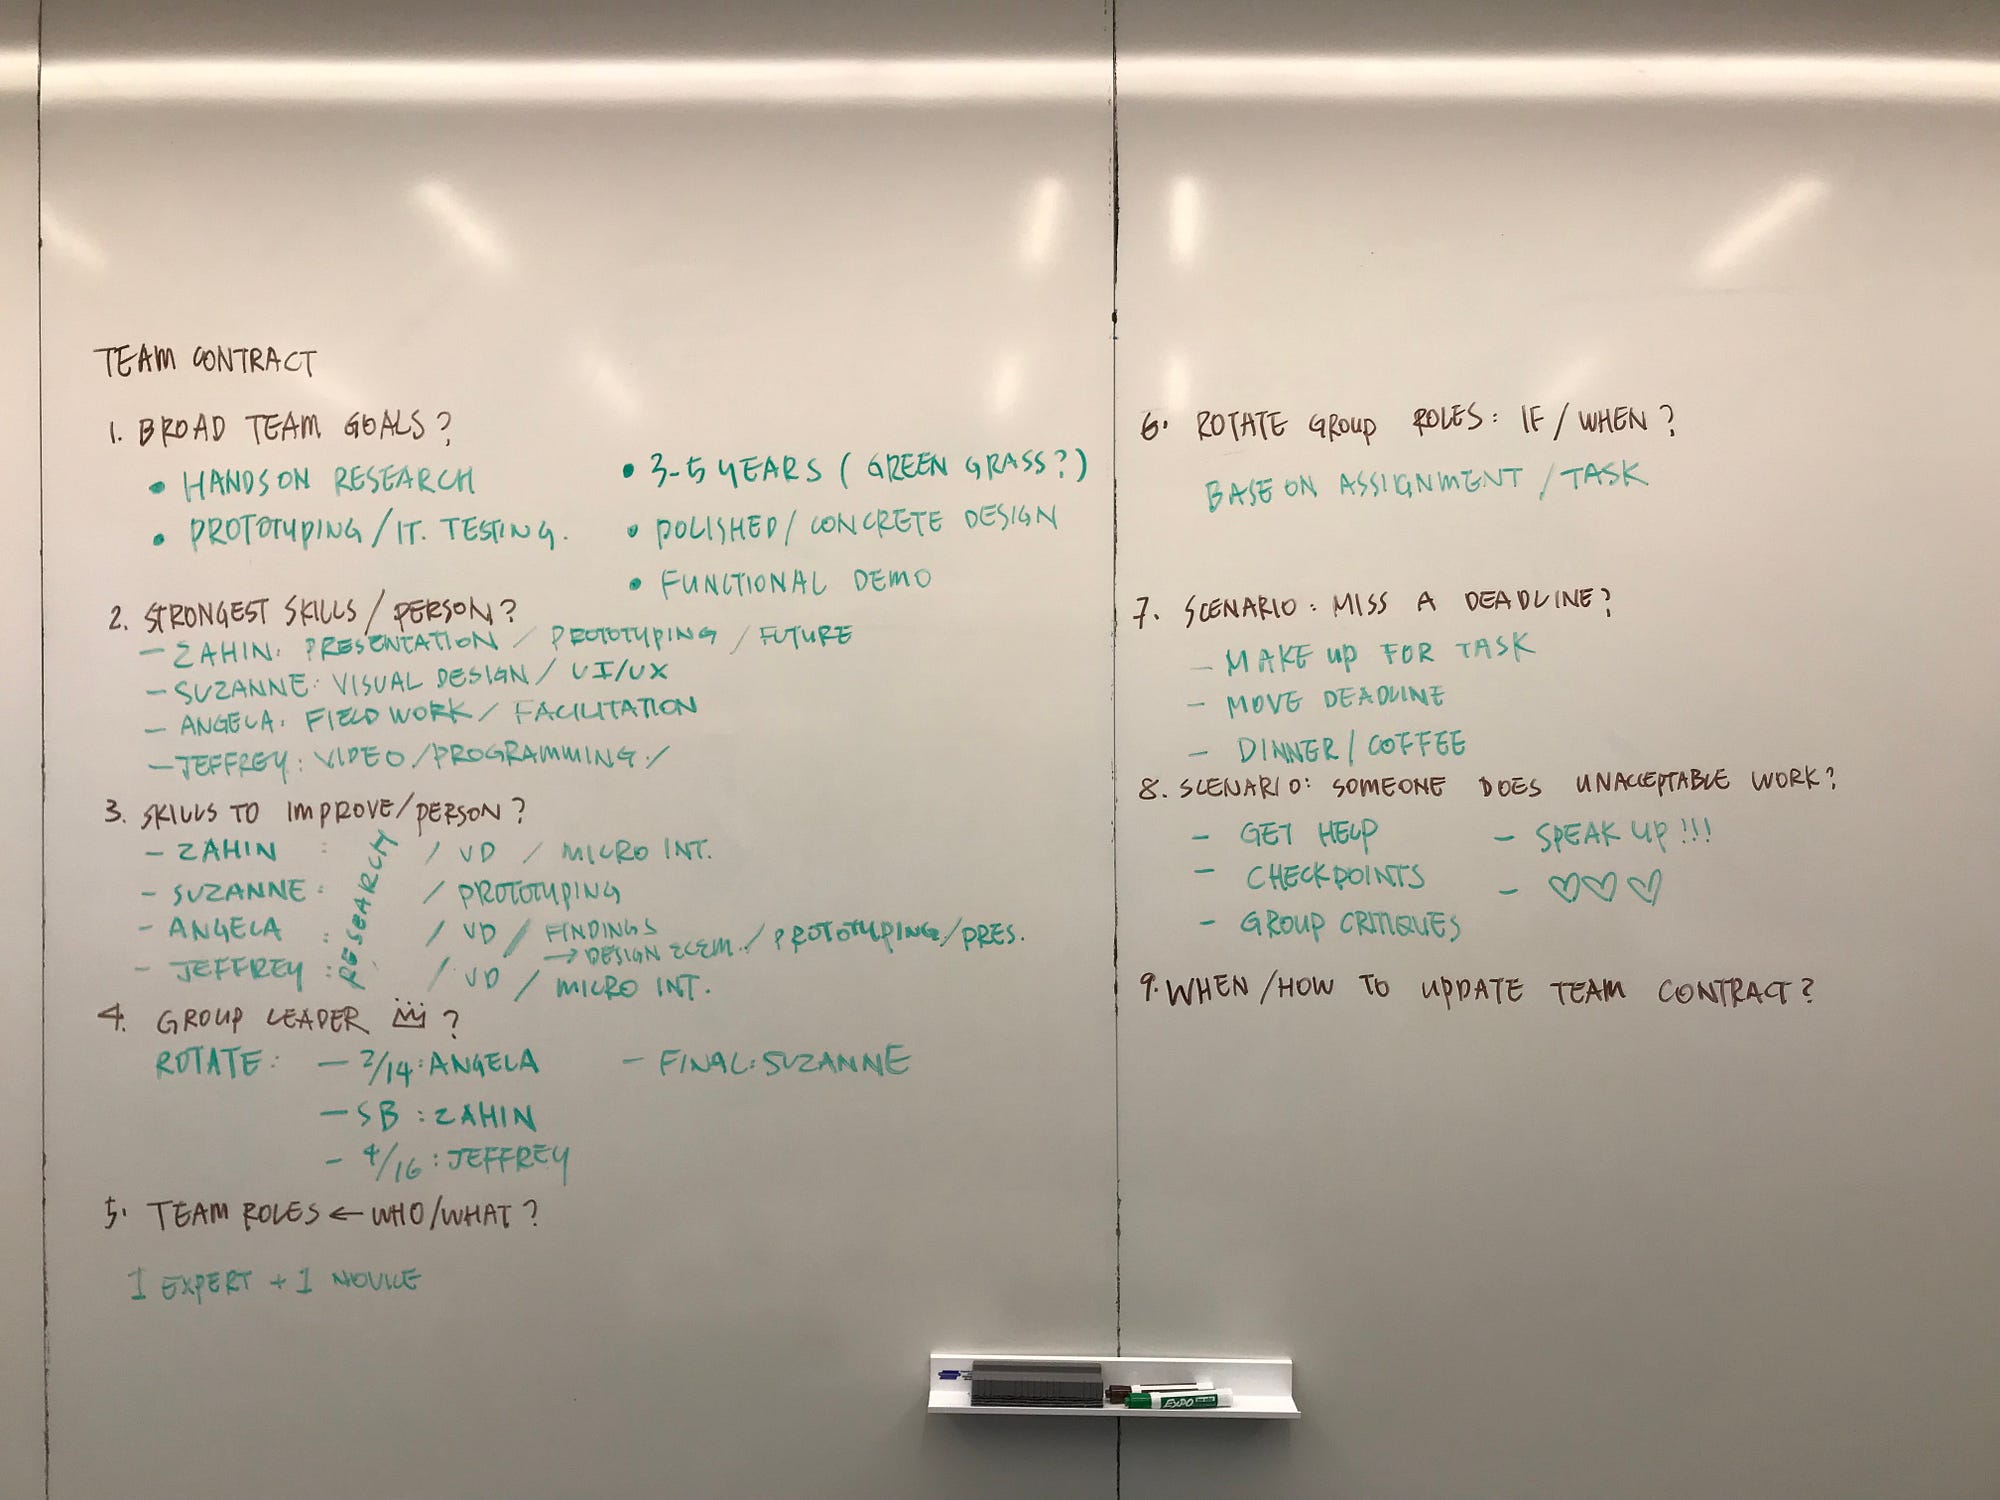 TEAM CONTRACT
1. BROAD TEAM GOALS?
• HANDS ON RESEARCH
• PROTOTYPING/IT. TESTING.
• 3-5 YEARS (GREEN GRASS?)
• POLISHED/CONCRETE DESIGN
• FUNCTIONAL DEMO
2. STRONGEST SKILLS/PERSON?
- ZAHIN: PRESENTATION / PROTOTYPING / FUTURE
- SUZANNE: VISUAL DESIGN / UI/UX
- ANGELA: FIELD WORK / FACILITATION
- JEFFREY: VIDEO/PROGRAMMING/
3. SKILLS TO IMPROVE/PERSON?
RESEARCH
- ZAHIN : / VD / MICRO INT.
- SUZANNE: / PROTOTYPING
- ANGELA : / VD / FINDINGS
→ DESIGN ELEM. / PROTOTYPING/PRES.
- JEFFREY: / VD / MICRO INT.
4. GROUP LEADER ?
ROTATE: - 2/14: ANGELA
- SB: ZAHIN
- 4/16: JEFFREY
- FINAL: SUZANNE
5. TEAM ROLES ← WHO/WHAT?
1 EXPERT + 1 NOVICE
6. ROTATE GROUP ROLES: IF/WHEN?
BASE ON ASSIGNMENT/TASK
7. SCENARIO: MISS A DEADLINE?
- MAKE UP FOR TASK
- MOVE DEADLINE
- DINNER/COFFEE
8. SCENARIO: SOMEONE DOES UNACCEPTABLE WORK?
- GET HELP
- CHECKPOINTS
- GROUP CRITIQUES
- SPEAK UP!!!
- ♡♡♡
9. WHEN/HOW TO UPDATE TEAM CONTRACT?
EXPO